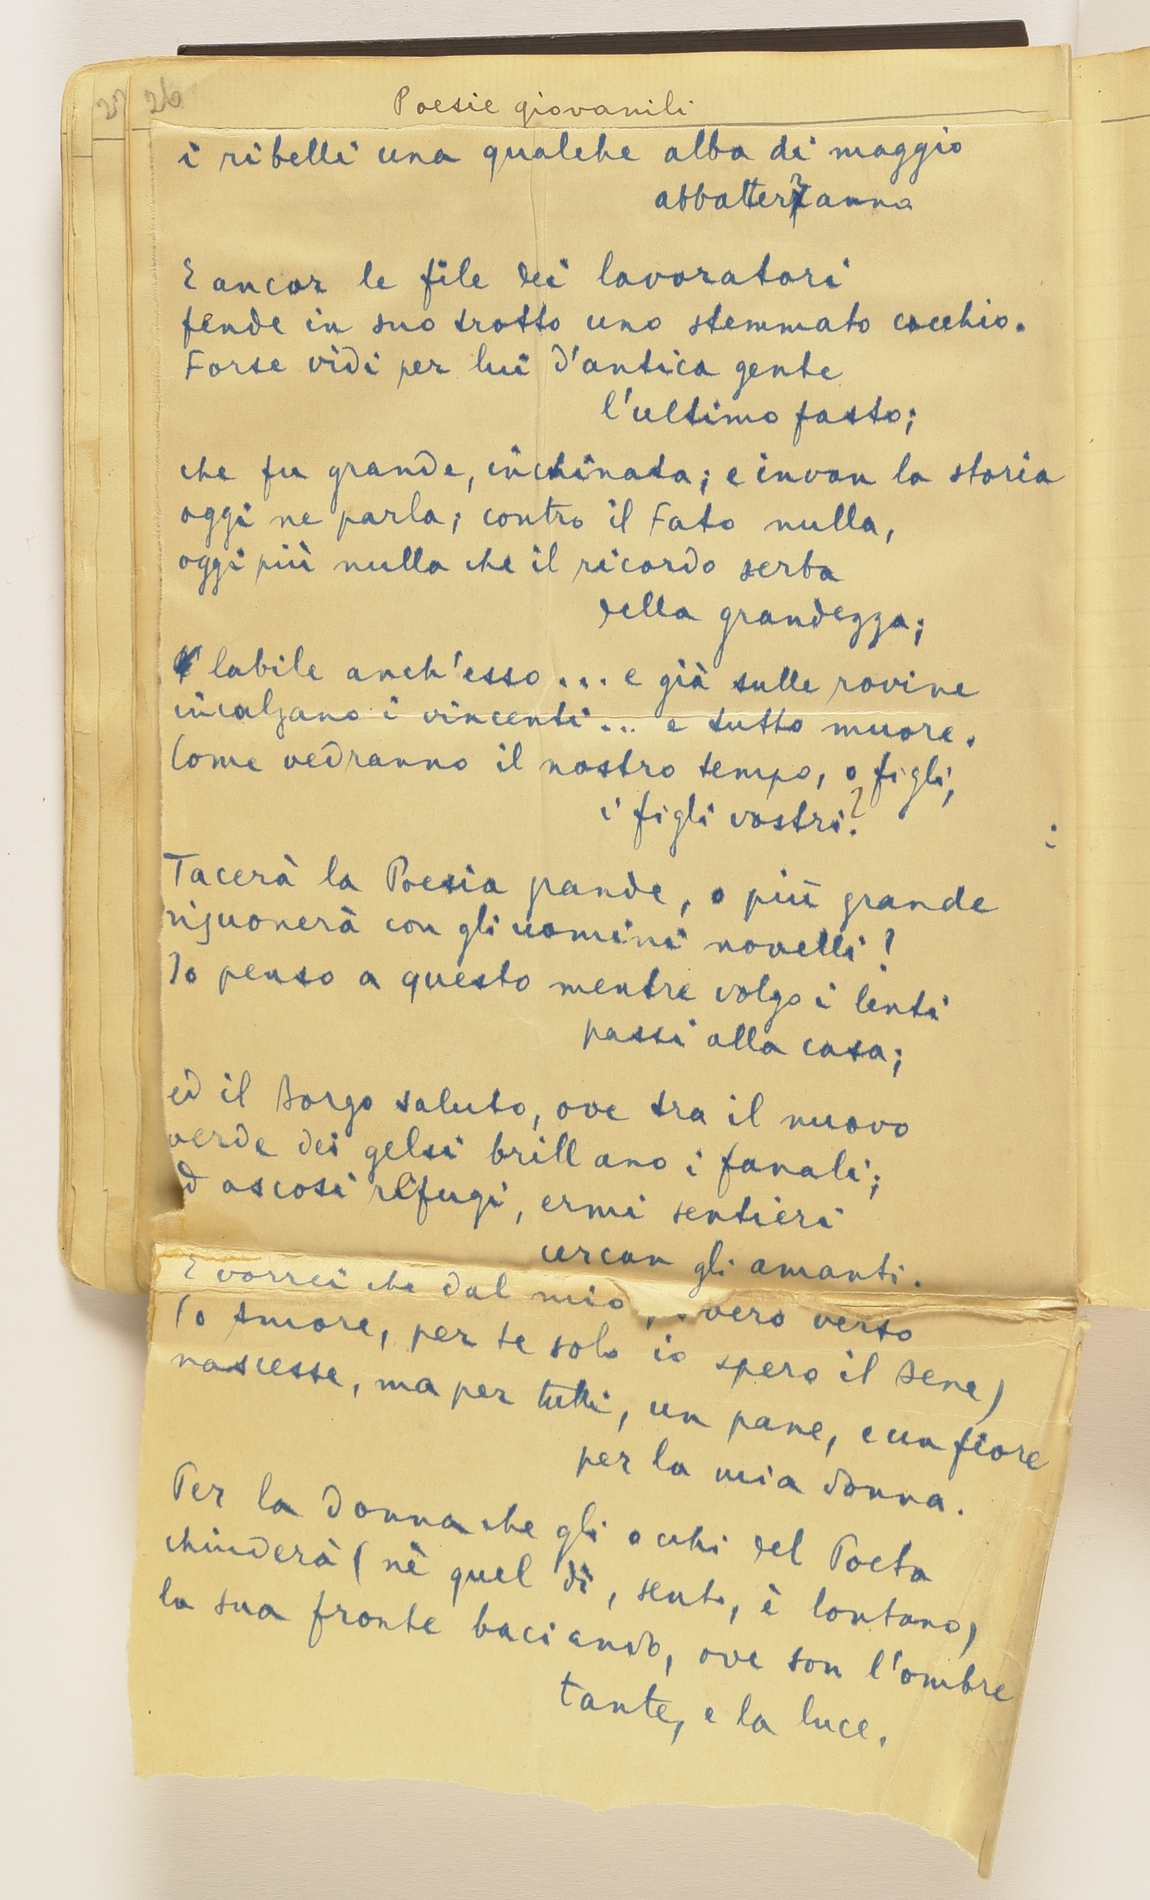 27 26
Poesie giovanili
i ribelli una qualche alba di maggio
abbatteranno
E ancor le file dei lavoratori
fende in suo trotto uno stemmato cocchio.
Forse vidi per lui d'antica gente
l'ultimo fasto;
che fu grande, inchinata; e invan la storia
oggi ne parla; contro il Fato nulla,
oggi più nulla che il ricordo serba
della grandezza;
labile anch'esso.... e già sulle rovine
incalzano i vincenti... e tutto muore.
Come vedranno il nostro tempo, o figli,
i figli vostri?
Tacerà la Poesia grande, o più grande
risuonerà con gli uomini novelli?
Io penso a questo mentre volgo i lenti
passi alla casa;
ed il Borgo saluto, ove tra il nuovo
verde dei gelsi brillano i fanali;
d ascosi rifugi, ermi sentieri
cercan gli amanti.
E vorrei che dal mio vero verso
(o Amore, per te solo io spero il bene)
nascesse, ma per tutti, un pane, e un fiore
per la mia donna.
Per la donna che gli occhi del Poeta
chiuderà (nè quel dì, sento, è lontano)
la sua fronte baciando, ove son l'ombre
tante, e la luce.